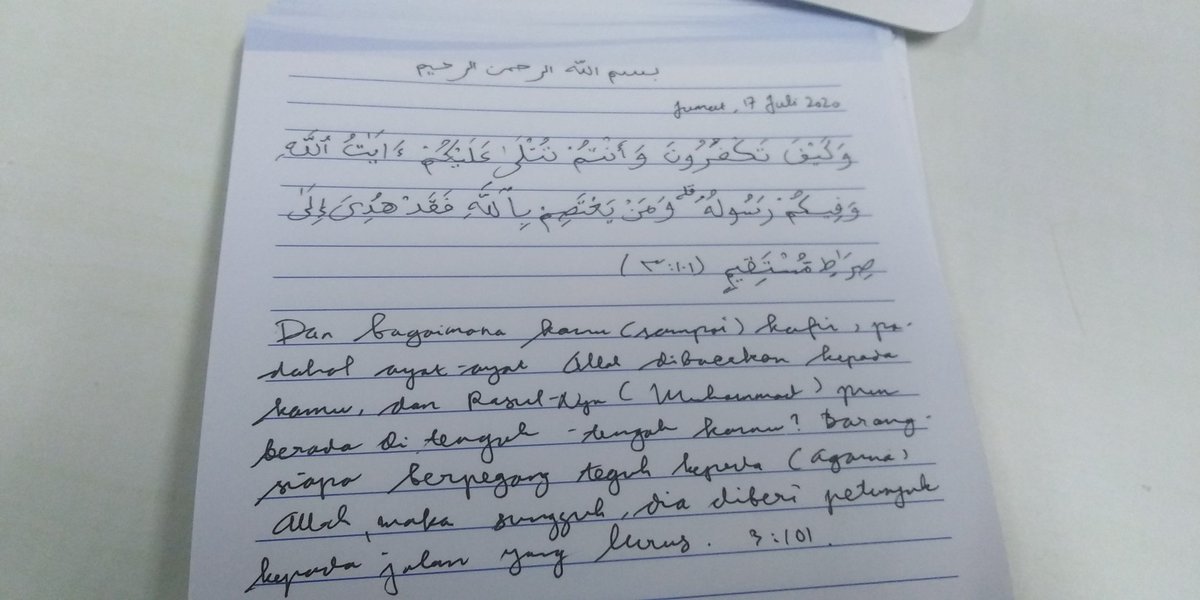 بسم الله الرحمن الرحيم
Jumat, 17 Juli 2020
وَكَيْفَ تَكْفُرُونَ وَأَنْتُمْ تُتْلَىٰ عَلَيْكُمْ ءَايَٰتُ ٱللَّهِ
وَفِيكُمْ رَسُولُهُۥ ۗ وَمَنْ يَعْتَصِمْ بِٱللَّهِ فَقَدْ هُدِىَ إِلَىٰ
صِرَٰطٍ مُّسْتَقِيمٍ (٣:١٠١)
Dan bagaimana kamu (sampai) kafir, pa-
dahal ayat-ayat Allah dibacakan kepada
kamu, dan Rasul-Nya (Muhammad) pun
berada di tengah-tengah kamu? Barang-
siapa berpegang teguh kepada (agama)
Allah, maka sungguh, dia diberi petunjuk
kepada jalan yang lurus. 3:101.